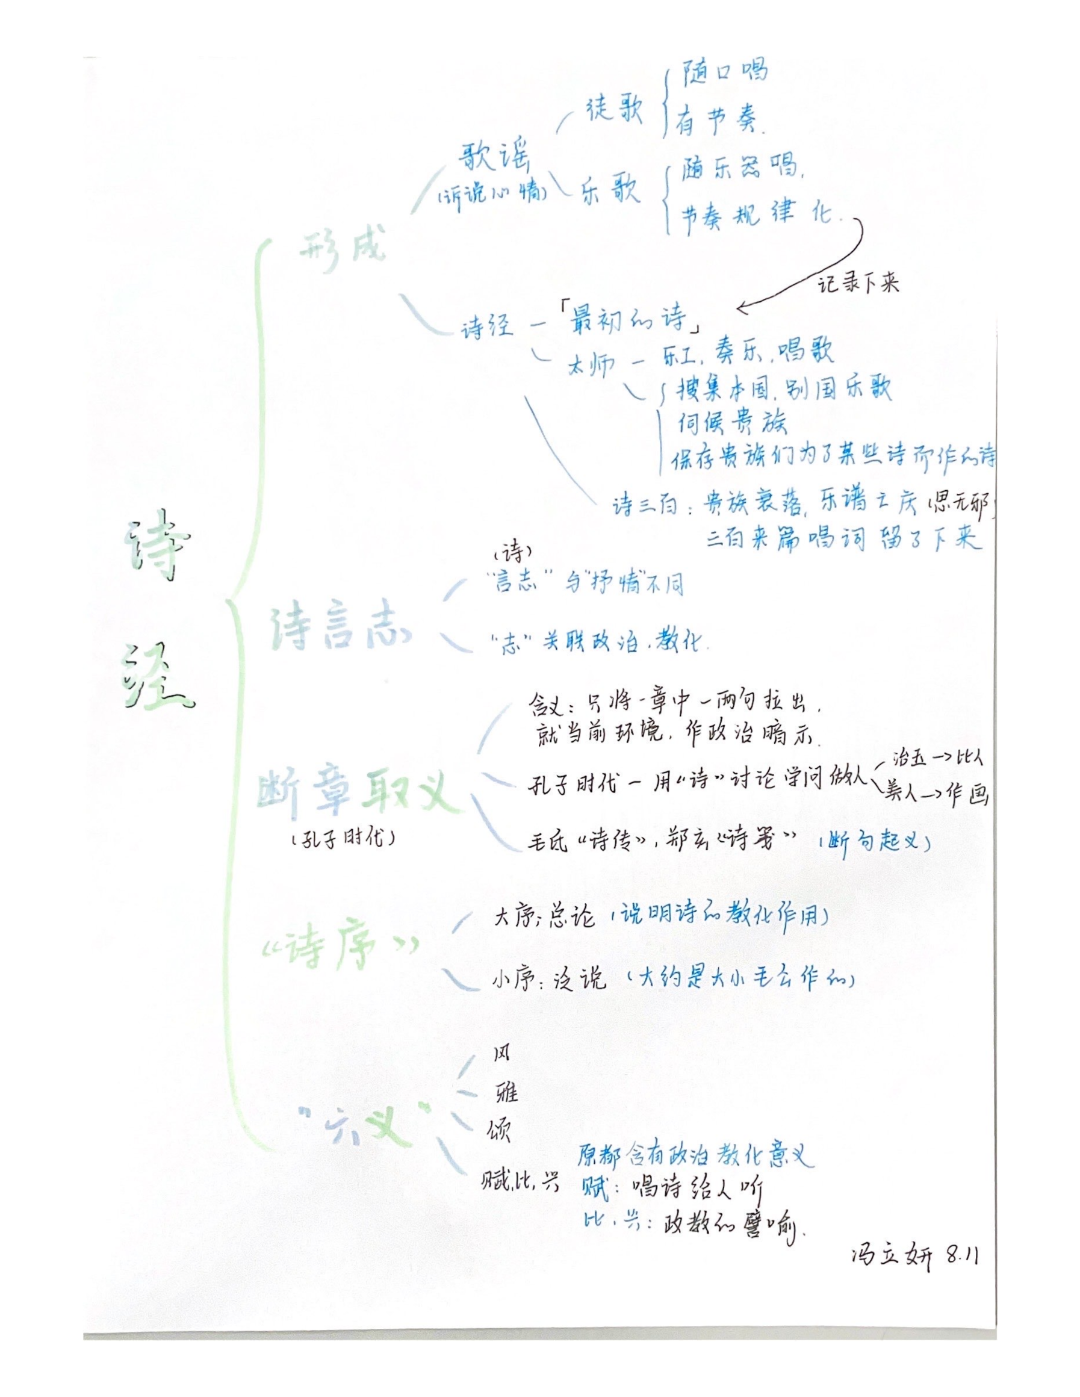 诗经
形成
歌谣
(诉说心情)
徒歌
随口唱
有节奏.
乐歌
随乐器唱,
节奏规律化.
记录下来
诗经 - 「最初的诗」
太师 - 乐工,奏乐,唱歌
搜集本国,别国乐歌
伺候贵族
保存贵族们为了某些诗而作的诗
诗三百:贵族衰落,乐谱亡失 (思无邪)
三百来篇唱词留了下来
诗言志
(诗)
"言志"与"抒情"不同
"志"关联政治,教化.
断章取义
(孔子时代)
含义:只将一章中一两句拉出,
就当前环境,作政治暗示.
孔子时代-用"诗"讨论学问做人
治玉→比人
美人→作画
毛氏《诗传》,郑玄《诗笺》(断句起义)
《诗序》
大序:总论 (说明诗的教化作用)
小序:泛说 (大约是大小毛公作的)
"六义"
风
雅
颂
赋,比,兴
原都含有政治教化意义
赋:唱诗给人听
比,兴:政教的譬喻.
冯立妍 8.11